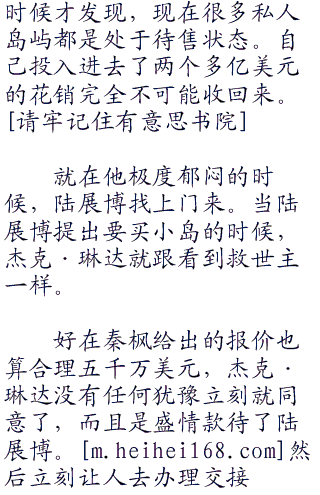 时候才发现，现在很多私人
岛屿都是处于待售状态。自
己投入进去了两个多亿美元
的花销完全不可能收回来。
[请牢记住有意思书院]
就在他极度郁闷的时
候，陆展博找上门来。当陆
展博提出要买小岛的时候，
杰克·琳达就跟看到救世主
一样。
好在秦枫给出的报价也
算合理五千万美元，杰克·
琳达没有任何犹豫立刻就同
意了，而且是盛情款待了陆
展博。[m.heihei168.com]然
后立刻让人去办理交接